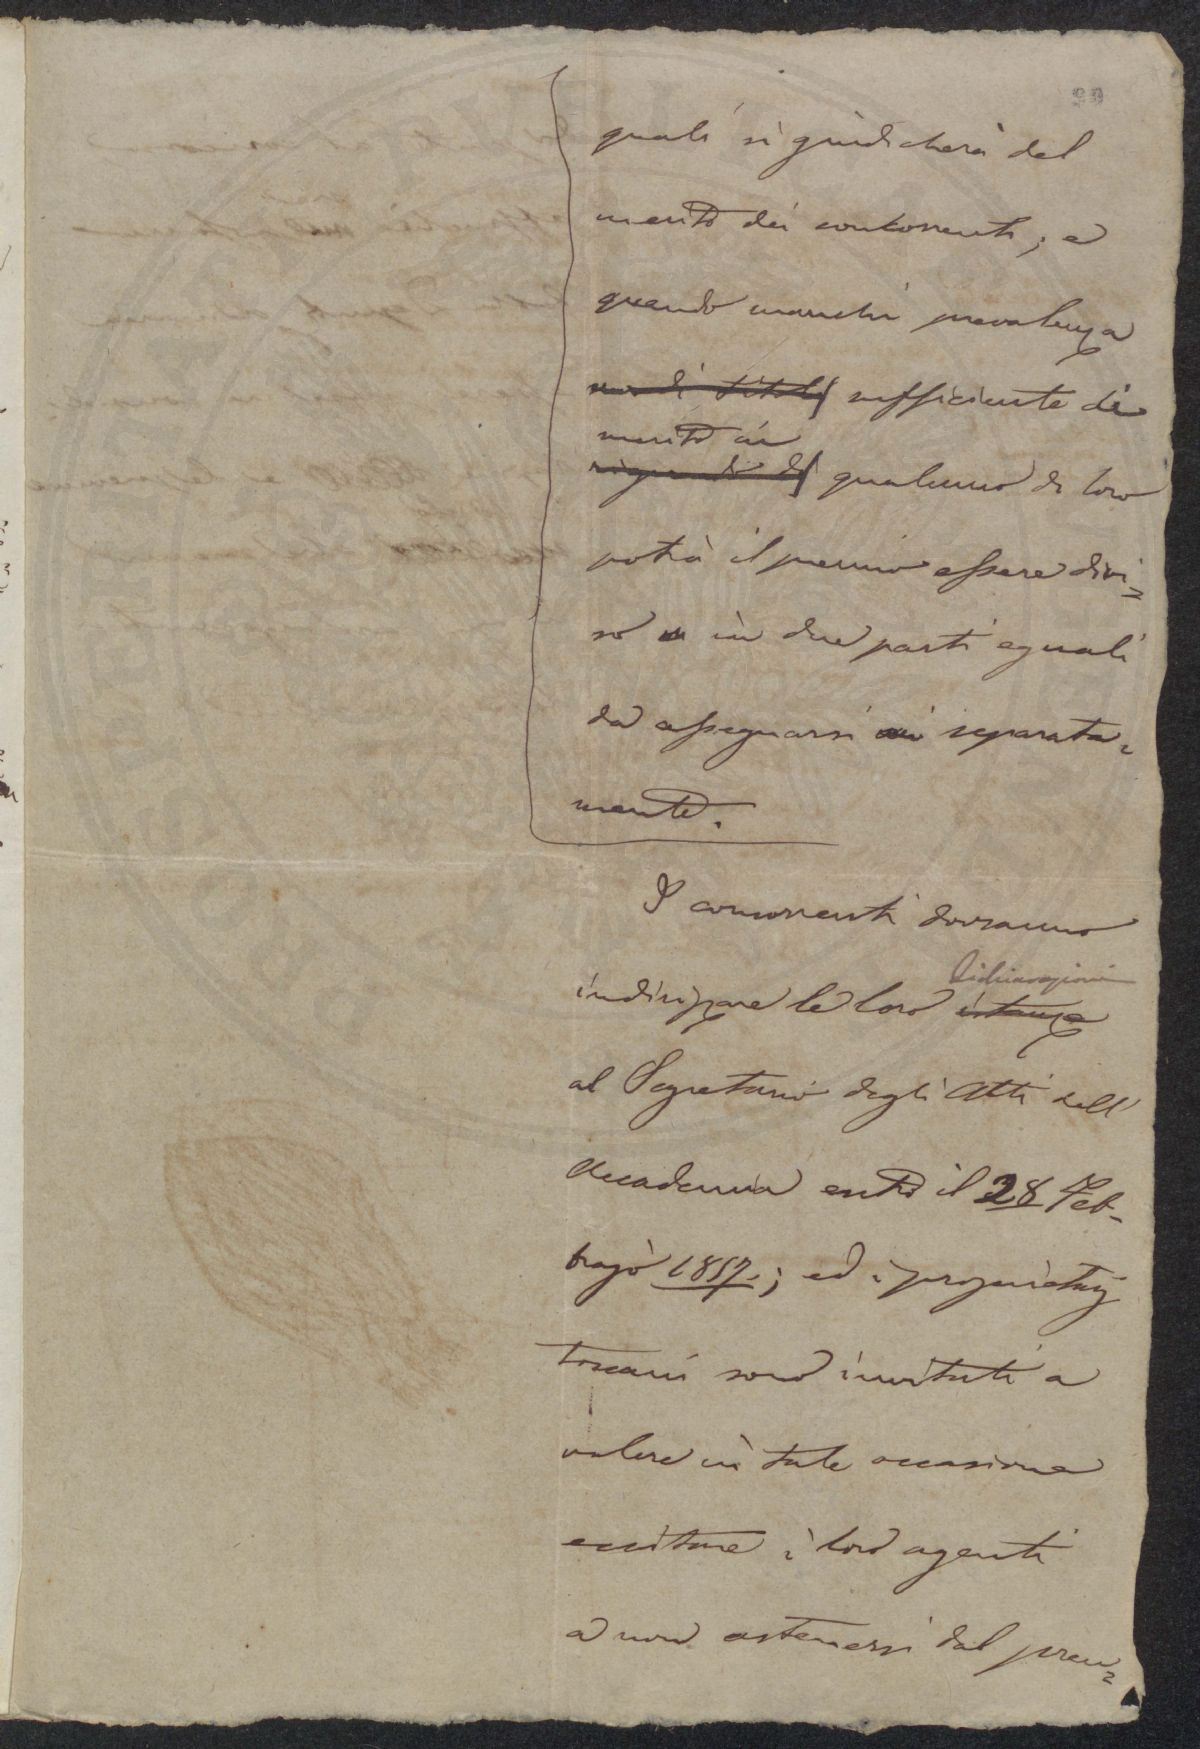 90
quali si giudicherà del
merito dei concorrenti; e
quando manchi prevalenza
sufficiente di
merito in
riguardo di qualcuno di loro
potrà il premio essere divi=
so in due parti eguali
da assegnarsi separata=
mente.
I concorrenti dovranno
dichiarazioni
indirizzare le loro istanze
al Segretario degli Atti dell'
Accademia entro il 28 Feb=
brajo 1857.; ed i proprietarj
toscani sono invitati a
volere in tale occasione
eccitare i loro agenti
a non astenersi dal pren=